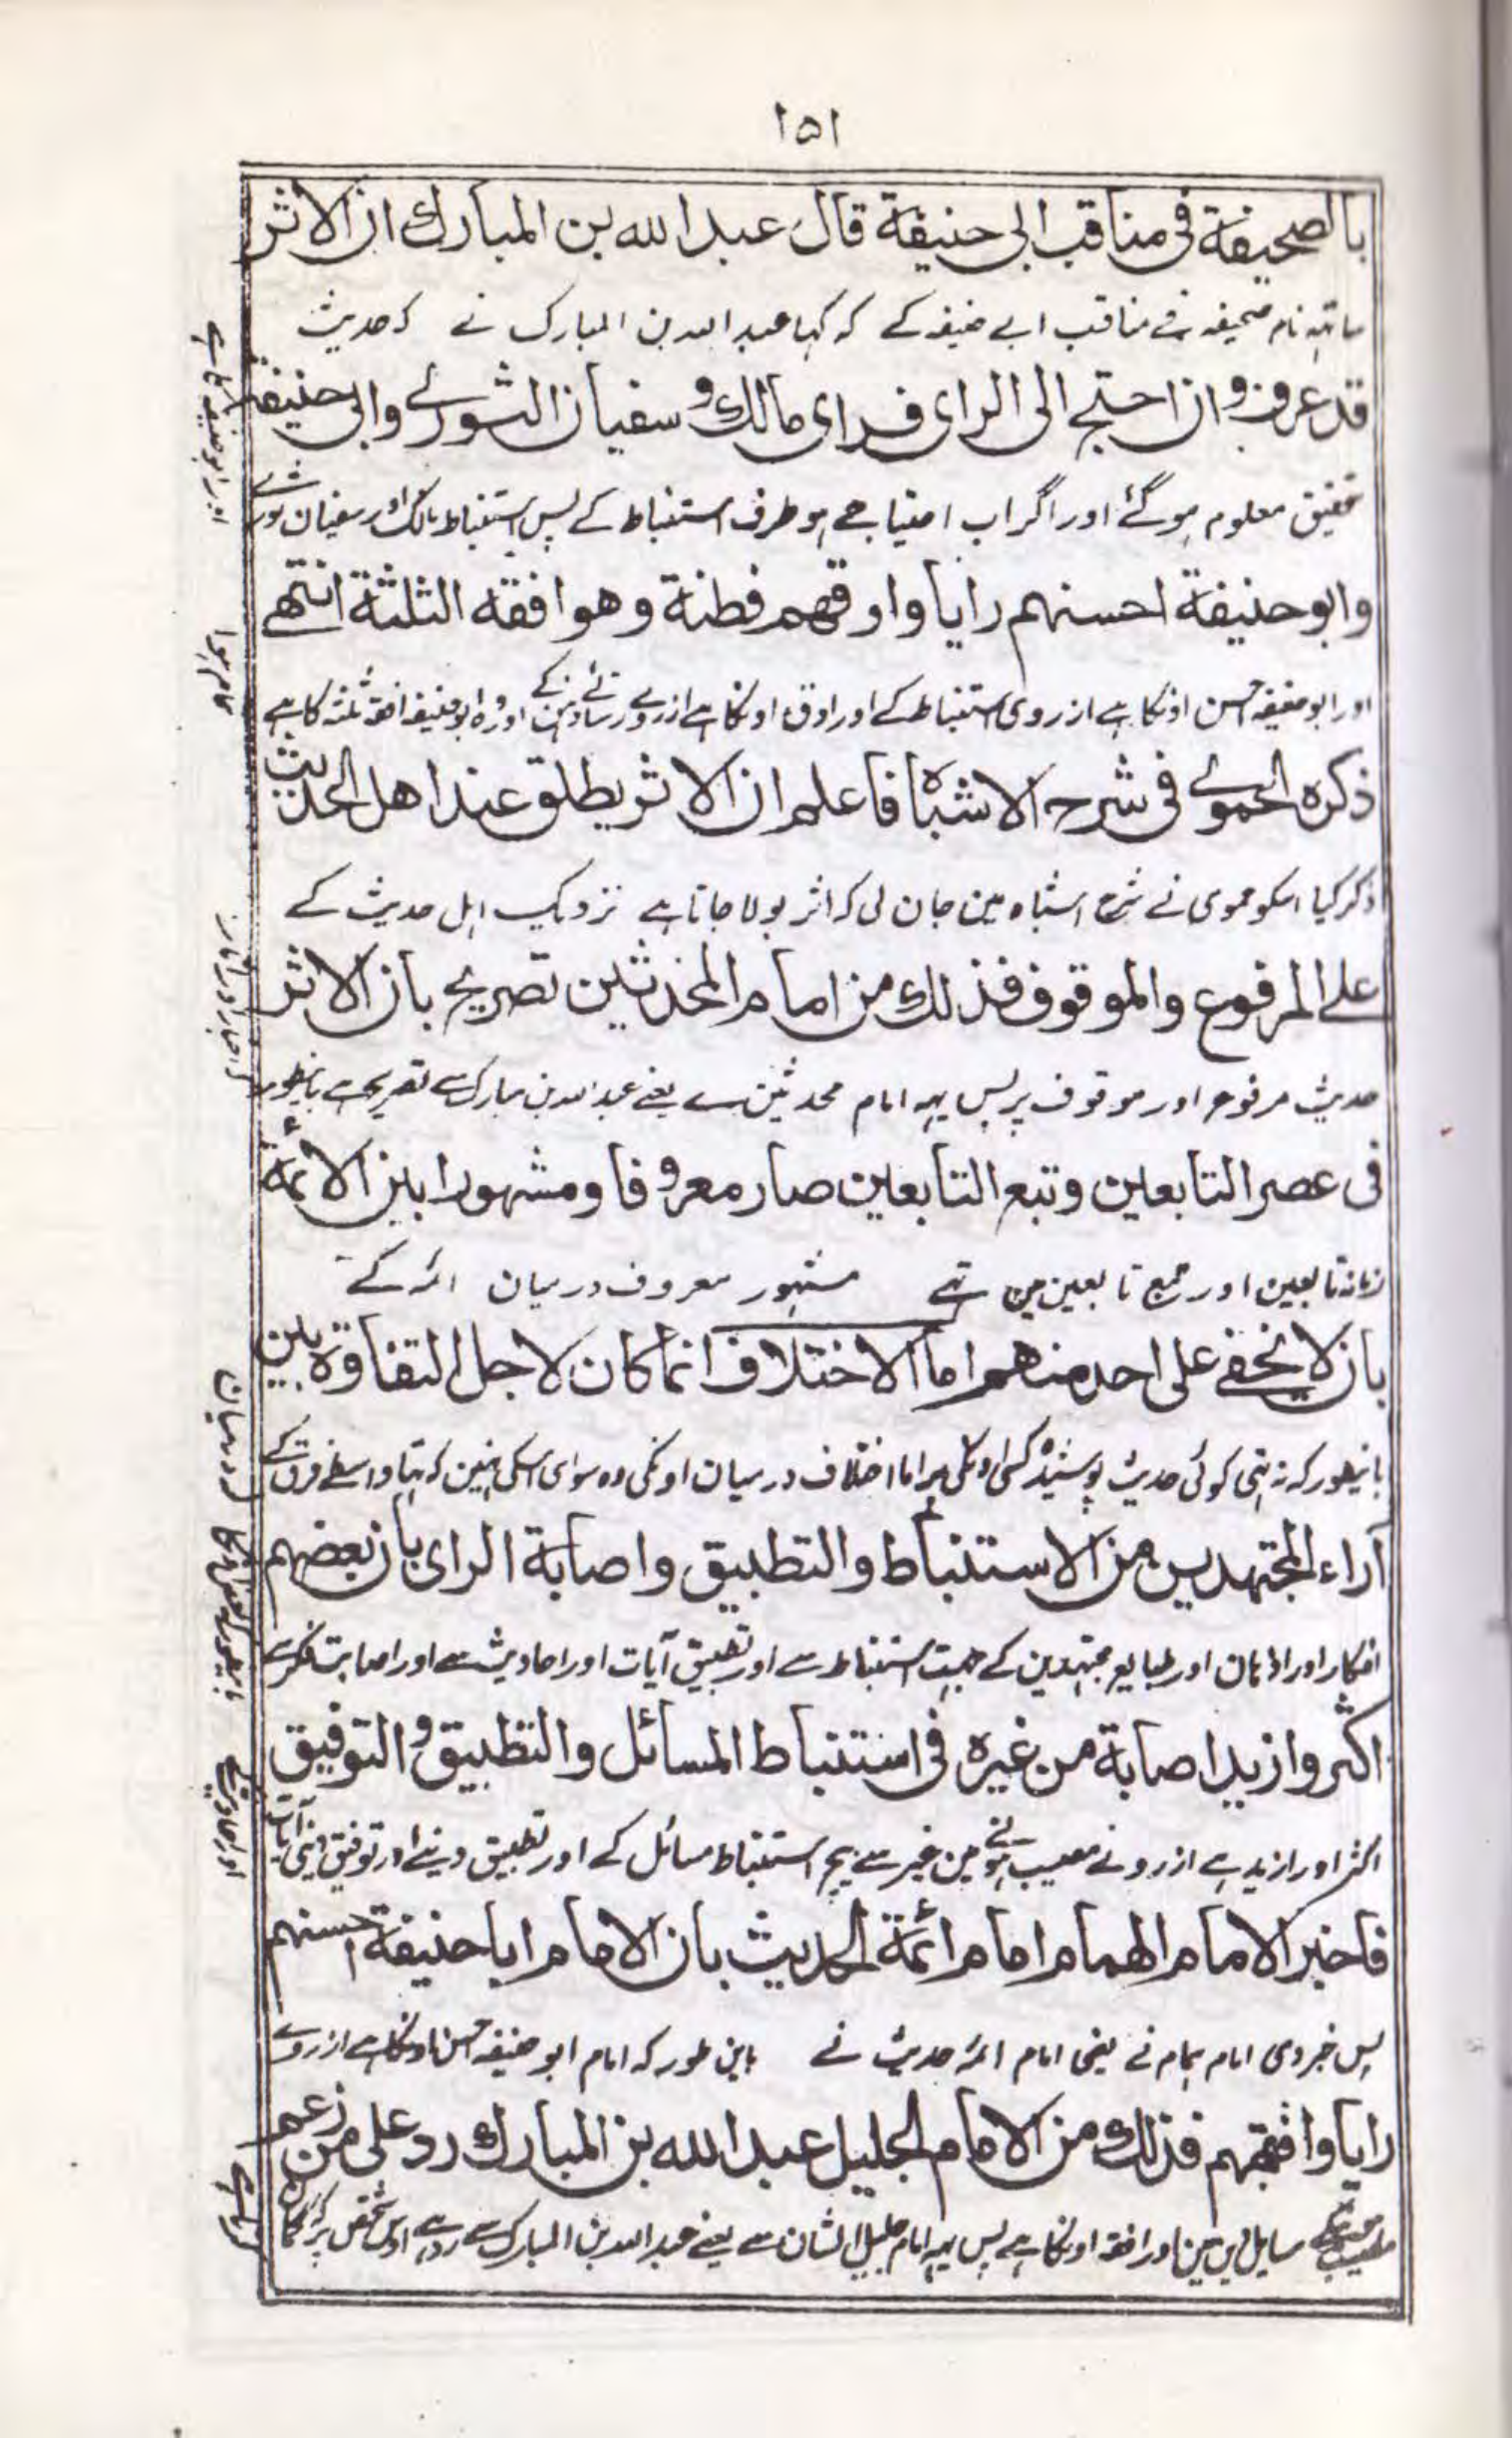 ١٥١
بالصحیفة فی مناقب ابی حنیفة قال عبد الله بن المبارك ان الاثر
ساتہہ نام صحیفہ فے مناقب ابے حنیفہ کے کہ کہا عبد اللہ بن المبارک نے کہ حدیث
قد عرف وان احتج الی الرای فرای مالك وسفیان الثوری وابی حنیفة
تحقیق معلوم ہو گئے اور اگر اب احتیاج ہو طرف استنباط کے پس استنباط مالک اور سفیان ثوری
وابو حنیفة احسنهم رایا وادقهم فطنة وهو افقه الثلثة انتهے
اور ابو حنیفہ احسن اونکا ہے از روی استنباط کے اور ادق اونکا ہے از روے رسائے ذہن کے اور وہ ابو حنیفہ افقہ ثلثہ کا ہے
ذکره الحموے فی شرح الاشباه فاعلم ان الاثر یطلق عند اهل الحدیث
ذکر کیا اسکو حموی نے شرح اشباہ مین جان لی کہ اثر بولا جاتا ہے نزدیک اہل حدیث کے
علے المرفوع والموقوف فذلك من امام المحدثین تصریح بان الاثر
حدیث مرفوع اور موقوف پر پس یہہ امام محدثین سے یعنے عبد اللہ بن مبارک سے تصریح ہے باینطور
فی عصر التابعین وتبع التابعین صار معروفا ومشهورا بین الائمة
زمانہ تابعین اور تبع تابعین مین تہے مشہور معروف درمیان ائمہ کے
بان لا یخفے علی احد منهم اما الاختلاف انما کان لاجل التفاوة بین
باینطور کہ نہ تہی کوئی حدیث پوشیدہ کسی اونکی پر اما اختلاف درمیان اونکی وہ سوای اسکی نہین کہ تہا واسطے فرق کے
آراء المجتهدین من الاستنباط والتطبیق واصابة الرای بان بعضهم
افکار اور اذہان اور طبایع مجتہدین کے جہت استنباط سے اور تطبیق آیات اور احادیث سے اور اصابت فکر سے
اکثر وازید اصابة من غیره فی استنباط المسائل والتطبیق والتوفیق
اکثر اور ازید ہے از روے مصیب ہونے مین غیر سے بیچ استنباط مسائل کے اور تطبیق دینے اور توفیق دینی آیات
فاخبر الامام الهمام امام ائمة الحدیث بان الامام ابا حنیفة احسنهم
پس خبر دی امام ہمام نے یعنی امام ائمہ حدیث نے باین طور کہ امام ابو حنیفہ احسن اونکا ہے از روے
رایا وافقههم فذلك من الامام الجلیل عبد الله بن المبارك رد علی من زعم
مسایل مین اور افقہ اونکا ہے پس یہہ امام جلیل الشان سے یعنے عبد اللہ بن المبارک سے رد ہے اوس شخص پر کہ گمان